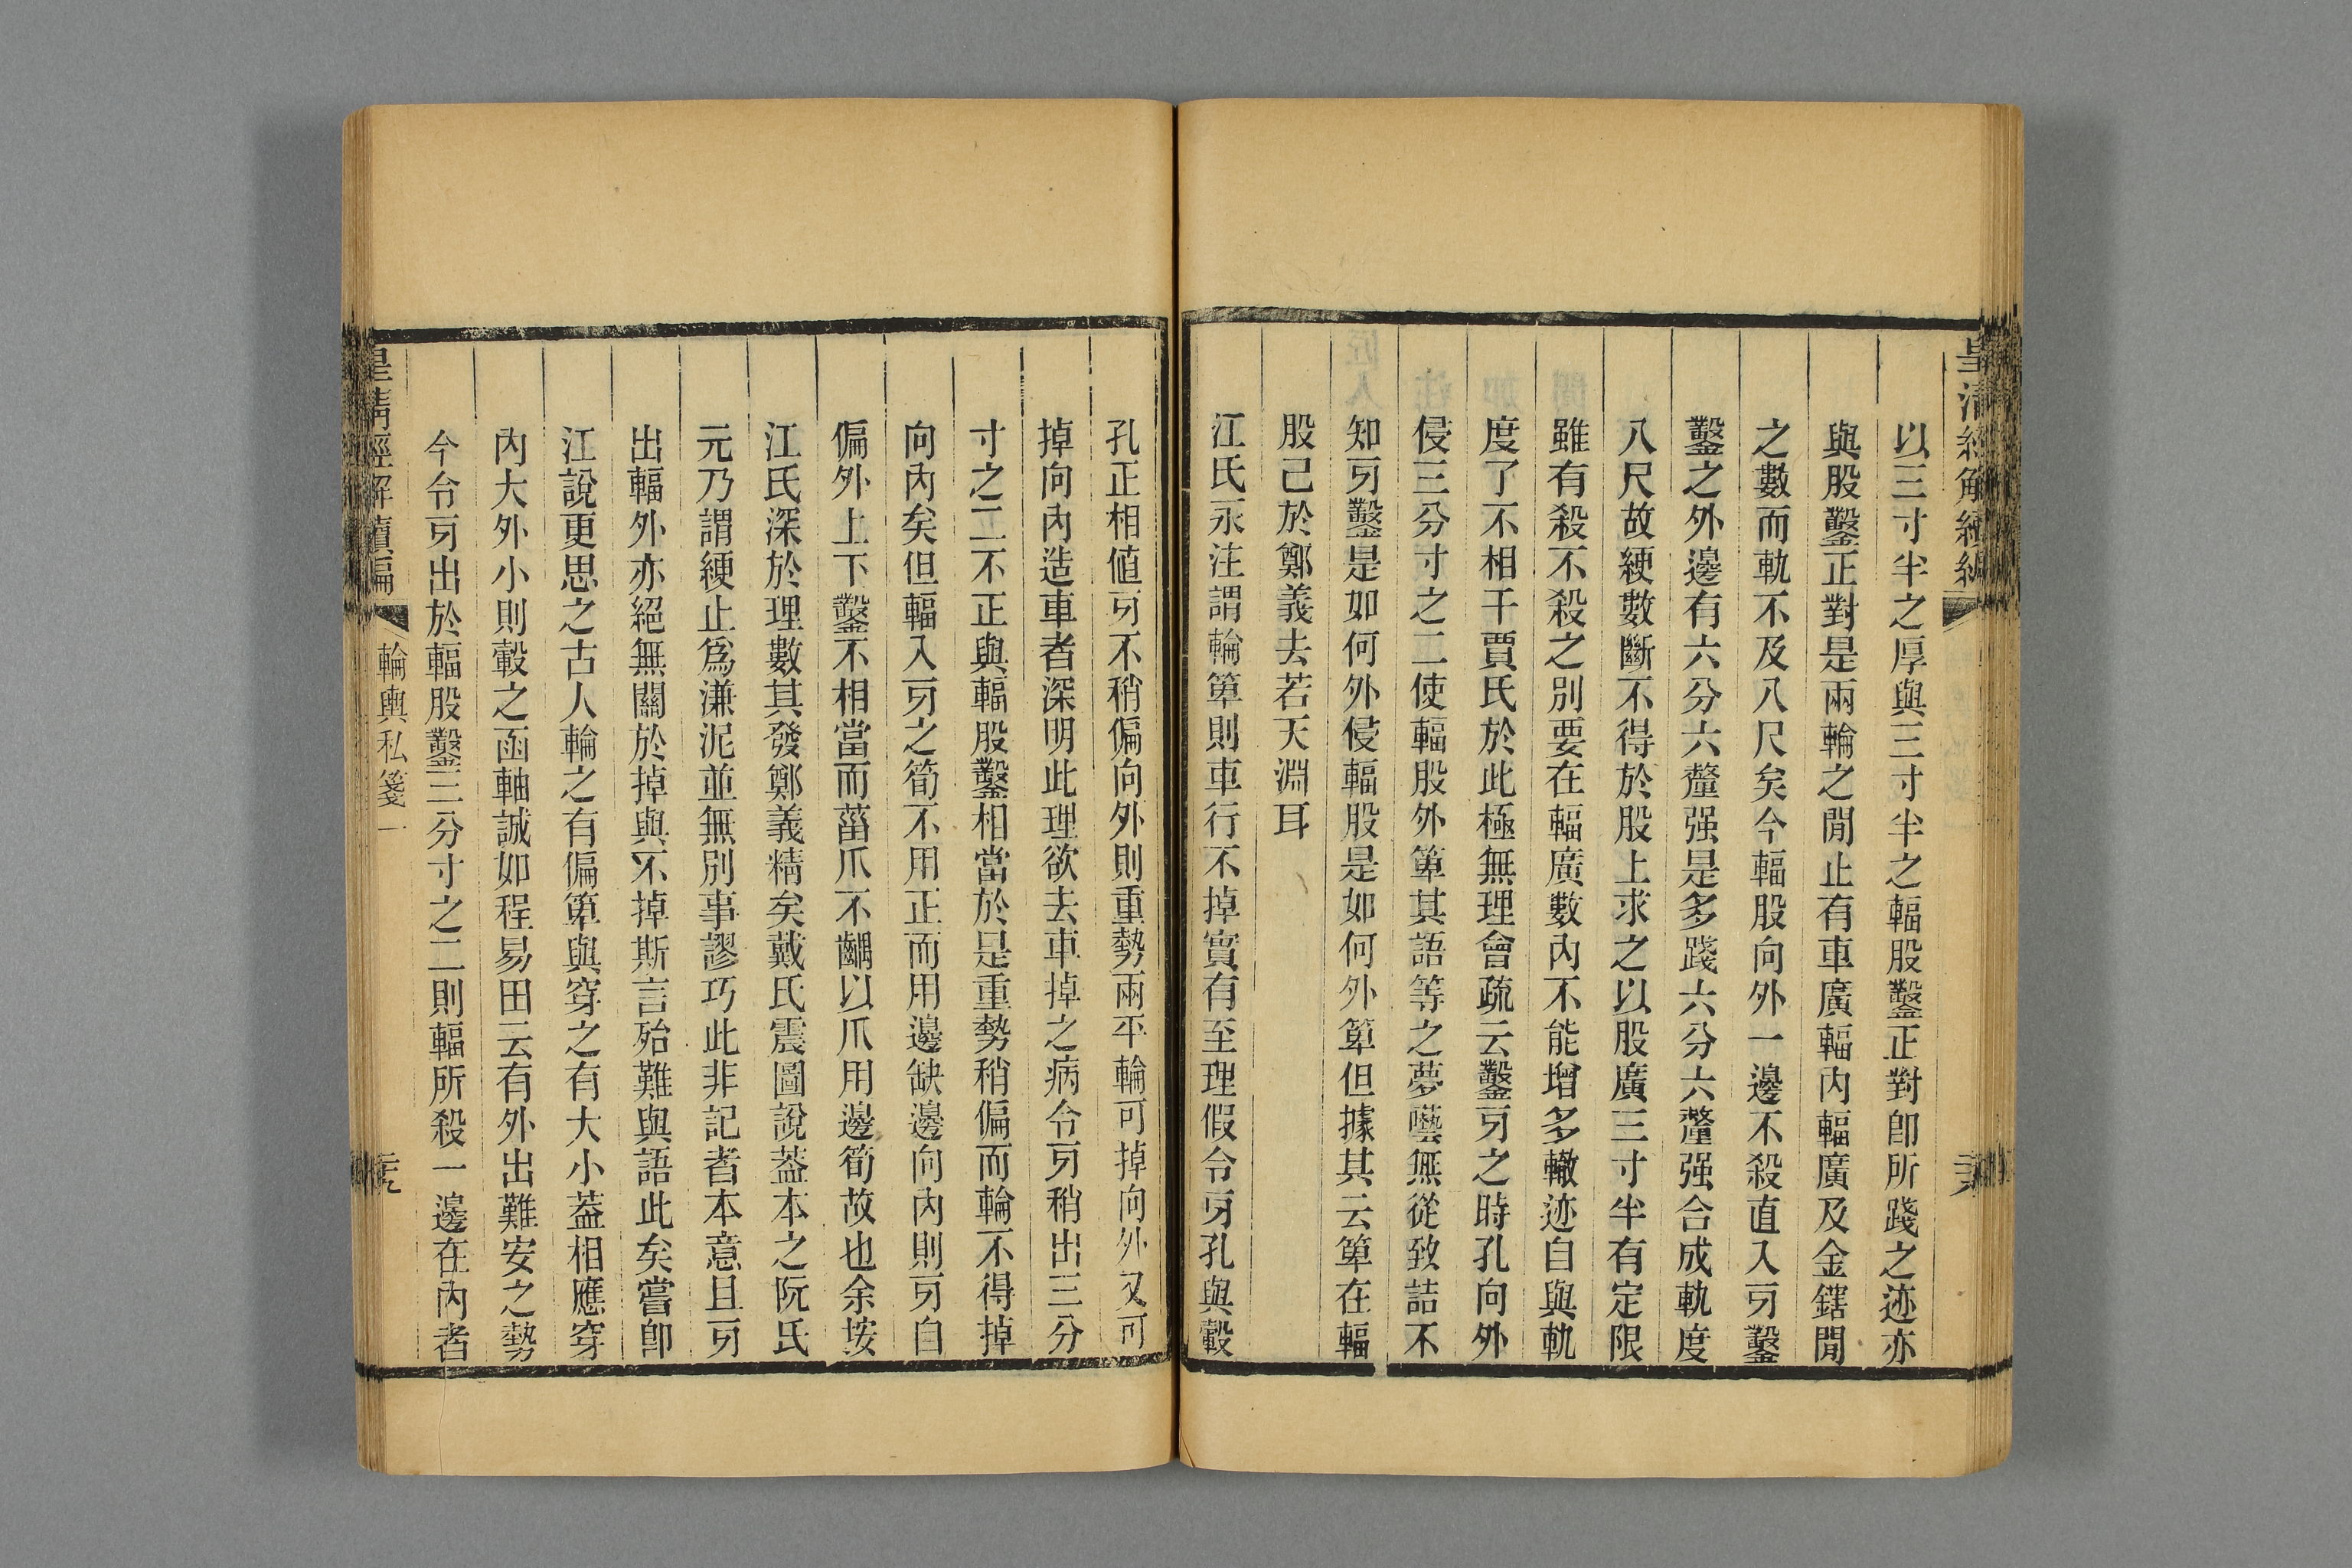 皇清經解續編
以三寸半之厚與三寸半之輻股鑿正對卽所踐之迹亦
與股鑿正對是兩輪之閒止有車廣輻內輻廣及金鎋閒
之數而軌不及八尺矣今輻股向外一邊不殺直入䇂鑿
鑿之外邊有六分六釐强是多踐六分六釐强合成軌度
八尺故綆數斷不得於股上求之以股廣三寸半有定限
雖有殺不殺之別要在輻廣數內不能增多轍迹自與軌
度了不相干賈氏於此極無理會疏云鑿牙之時孔向外
侵三分寸之二使輻股外箄其語等之夢囈無從致詰不
知牙鑿是如何外侵輻股是如何外箄但據其云箄在輻
股已於鄭義去若天淵耳
江氏永注謂輪箄則車行不掉實有至理假令牙孔與轂
孔正相值牙不稍偏向外則重勢兩平輪可掉向外又可
掉向內造車者深明此理欲去車掉之病令牙稍出三分
寸之二不正與輻股鑿相當於是重勢稍偏而輪不得掉
向內矣但輻入牙之筍不用正而用邊缺邊向內則牙自
偏外上下鑿不相當而菑爪不齵以爪用邊筍故也余按
江氏深於理數其發鄭義精矣戴氏震圖說葢本之阮氏
元乃謂綆止爲溓泥並無別事謬巧此非記者本意且牙
出輻外亦絕無關於掉與不掉斯言殆難與語此矣嘗卽
江說更思之古人輪之有偏箄與穿之有大小葢相應穿
內大外小則轂之函軸誠如程易田云有外出難安之勢
今令牙出於輻股鑿三分寸之二則輻所殺一邊在內者
皇淸經解續編
輪輿私箋一